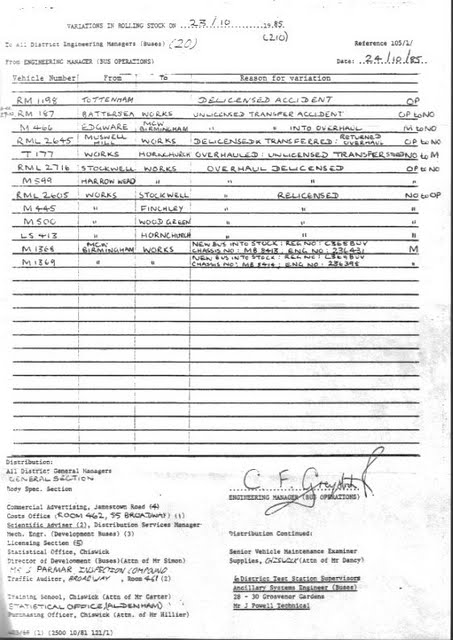 VARIATIONS IN ROLLING STOCK ON 23/10 1985
(210)
To All District Engineering Managers (Buses) (20)
Reference 105/1/
From ENGINEERING MANAGER (BUS OPERATIONS)
Date: 24/10/85
Vehicle Number From To Reason for variation
RM 1198 TOTTENHAM DELICENSED ACCIDENT OP
RM 187 BATTERSEA WORKS UNLICENSED TRANSFER ACCIDENT OP to NO
M 466 EDGWARE MCW BIRMINGHAM " " INTO OVERHAUL M to NO
RML 2645 MUSWELL HILL WORKS DELICENSED & TRANSFERRED: RETURNED OVERHAUL OP to NO
T 177 WORKS HORNCHURCH OVERHAULED: UNLICENSED TRANSFER NO to M
RML 2716 STOCKWELL WORKS OVERHAUL DELICENSED OP to NO
M 599 HARROW WEALD " " "
RML 2605 WORKS STOCKWELL " RELICENSED NO to OP
M 445 " FINCHLEY " " "
M 506 " WOOD GREEN " " "
LS 413 " HORNCHURCH " " "
M 1368 MCW BIRMINGHAM WORKS NEW BUS INTO STOCK: REG NO: C368BUV CHASSIS NO: MB 8413; ENG NO: 236431 M
M 1369 " " NEW BUS INTO STOCK: REG NO: C369BUV CHASSIS NO: MB 8414; ENG NO: 236398 "
Distribution:
All District General Managers
GENERAL SECTION
Body Spec. Section
ENGINEERING MANAGER (BUS OPERATIONS)
Commercial Advertising, Jamestown Road (4)
Costs Office (ROOM 462, 55 BROADWAY) (1)
Scientific Adviser (2), Distribution Services Manager
Mech. Engr. (Development Buses) (3)
Licensing Section (5)
Statistical Office, Chiswick
Director of Development (Buses)(Attn of Mr Simon)
MR J PARMAR INSPECTION COMPOUND
Traffic Auditor, BROADWAY, Room
Training School, Chiswick (Attn of Mr Carter)
STATISTICAL OFFICE (ALDENHAM)
Purchasing Officer, Chiswick, (Attn. of Mr Hillier)
Distribution Continued:
Senior Vehicle Maintenance Examiner
Supplies, CHISWICK (Attn of Mr Dancy)
6 District Test Station Supervisors
Ancillary Systems Engineer (Buses)
28 - 30 Grosvenor Gardens
Mr J Powell Technical
403/68 (1) (2500 10/81 121/1)